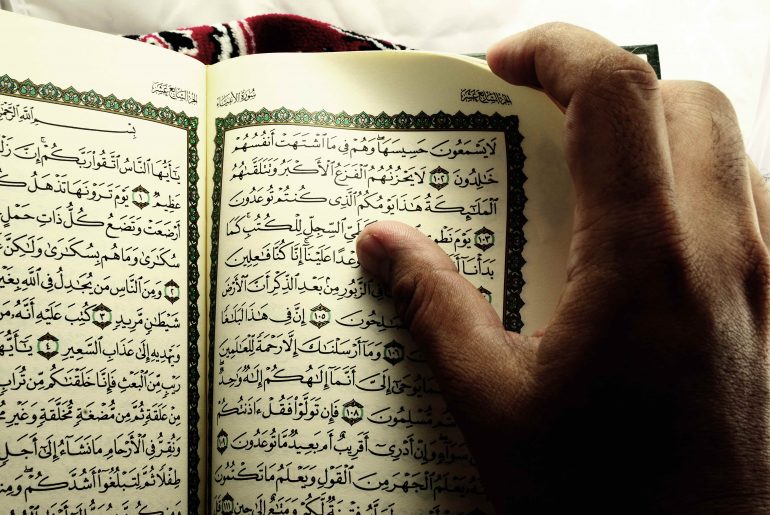 الجزء السابع عشر
سورة الأنبياء
لَا يَسْمَعُونَ حَسِيسَهَا وَهُمْ فِي مَا ٱشْتَهَتْ أَنفُسُهُمْ
خَٰلِدُونَ ١٠٢ لَا يَحْزُنُهُمُ ٱلْفَزَعُ ٱلْأَكْبَرُ وَتَتَلَقَّىٰهُمُ
ٱلْمَلَٰٓئِكَةُ هَٰذَا يَوْمُكُمُ ٱلَّذِى كُنتُمْ تُوعَدُونَ
١٠٣ يَوْمَ ٱلسِّجِلِّ لِلْكُتُبِ كَمَا
بَدَأْنَآ وَعْدًا عَلَيْنَآ إِنَّا كُنَّا فَٰعِلِينَ
فِى ٱلزَّبُورِ مِنۢ بَعْدِ ٱلذِّكْرِ أَنَّ ٱلْأَرْضَ
ٱلصَّٰلِحُونَ ١٠٥ إِنَّ فِى هَٰذَا لَبَلَٰغًا
١٠٦ وَمَآ أَرْسَلْنَٰكَ إِلَّا رَحْمَةً لِّلْعَٰلَمِينَ
يُوحَىٰٓ إِلَىَّ أَنَّمَآ إِلَٰهُكُمْ إِلَٰهٌ وَٰحِدٌ
مُّسْلِمُونَ ١٠٨ فَإِن تَوَلَّوْا۟ فَقُلْ ءَاذَنتُكُمْ
سَوَآءٍ وَإِنْ أَدْرِىٓ أَقَرِيبٌ أَم بَعِيدٌ مَّا تُوعَدُونَ ١٠٩
يَعْلَمُ ٱلْجَهْرَ مِنَ ٱلْقَوْلِ وَيَعْلَمُ مَا تَكْتُمُونَ
١١١ فِتْنَةٌ لَّكُمْ وَمَتَٰعٌ إِلَىٰ حِينٍ
الجزء السابع عشر
بِسْمِ ٱللَّهِ ٱلرَّحْمَٰنِ
يَٰٓأَيُّهَا ٱلنَّاسُ ٱتَّقُوا۟ رَبَّكُمْ إِنَّ
عَظِيمٌ ١ يَوْمَ تَرَوْنَهَا تَذْهَلُ
أَرْضَعَتْ وَتَضَعُ كُلُّ ذَاتِ حَمْلٍ
سُكَٰرَىٰ وَمَا هُم بِسُكَٰرَىٰ وَلَٰكِنَّ
٢ وَمِنَ ٱلنَّاسِ مَن يُجَٰدِلُ فِى ٱللَّهِ بِغَيْرِ
شَيْطَٰنٍ مَّرِيدٍ ٣ كُتِبَ عَلَيْهِ أَنَّهُۥ مَن
وَيَهْدِيهِ إِلَىٰ عَذَابِ ٱلسَّعِيرِ ٤ يَٰٓأَيُّهَا
رَيْبٍ مِّنَ ٱلْبَعْثِ فَإِنَّا خَلَقْنَٰكُم مِّن تُرَابٍ
مِنْ عَلَقَةٍ ثُمَّ مِن مُّضْغَةٍ مُّخَلَّقَةٍ وَغَيْرِ
وَنُقِرُّ فِى ٱلْأَرْحَامِ مَا نَشَآءُ إِلَىٰٓ أَجَلٍ
طِفْلًا ثُمَّ لِتَبْلُغُوٓا۟ أَشُدَّكُمْ وَمِنكُم